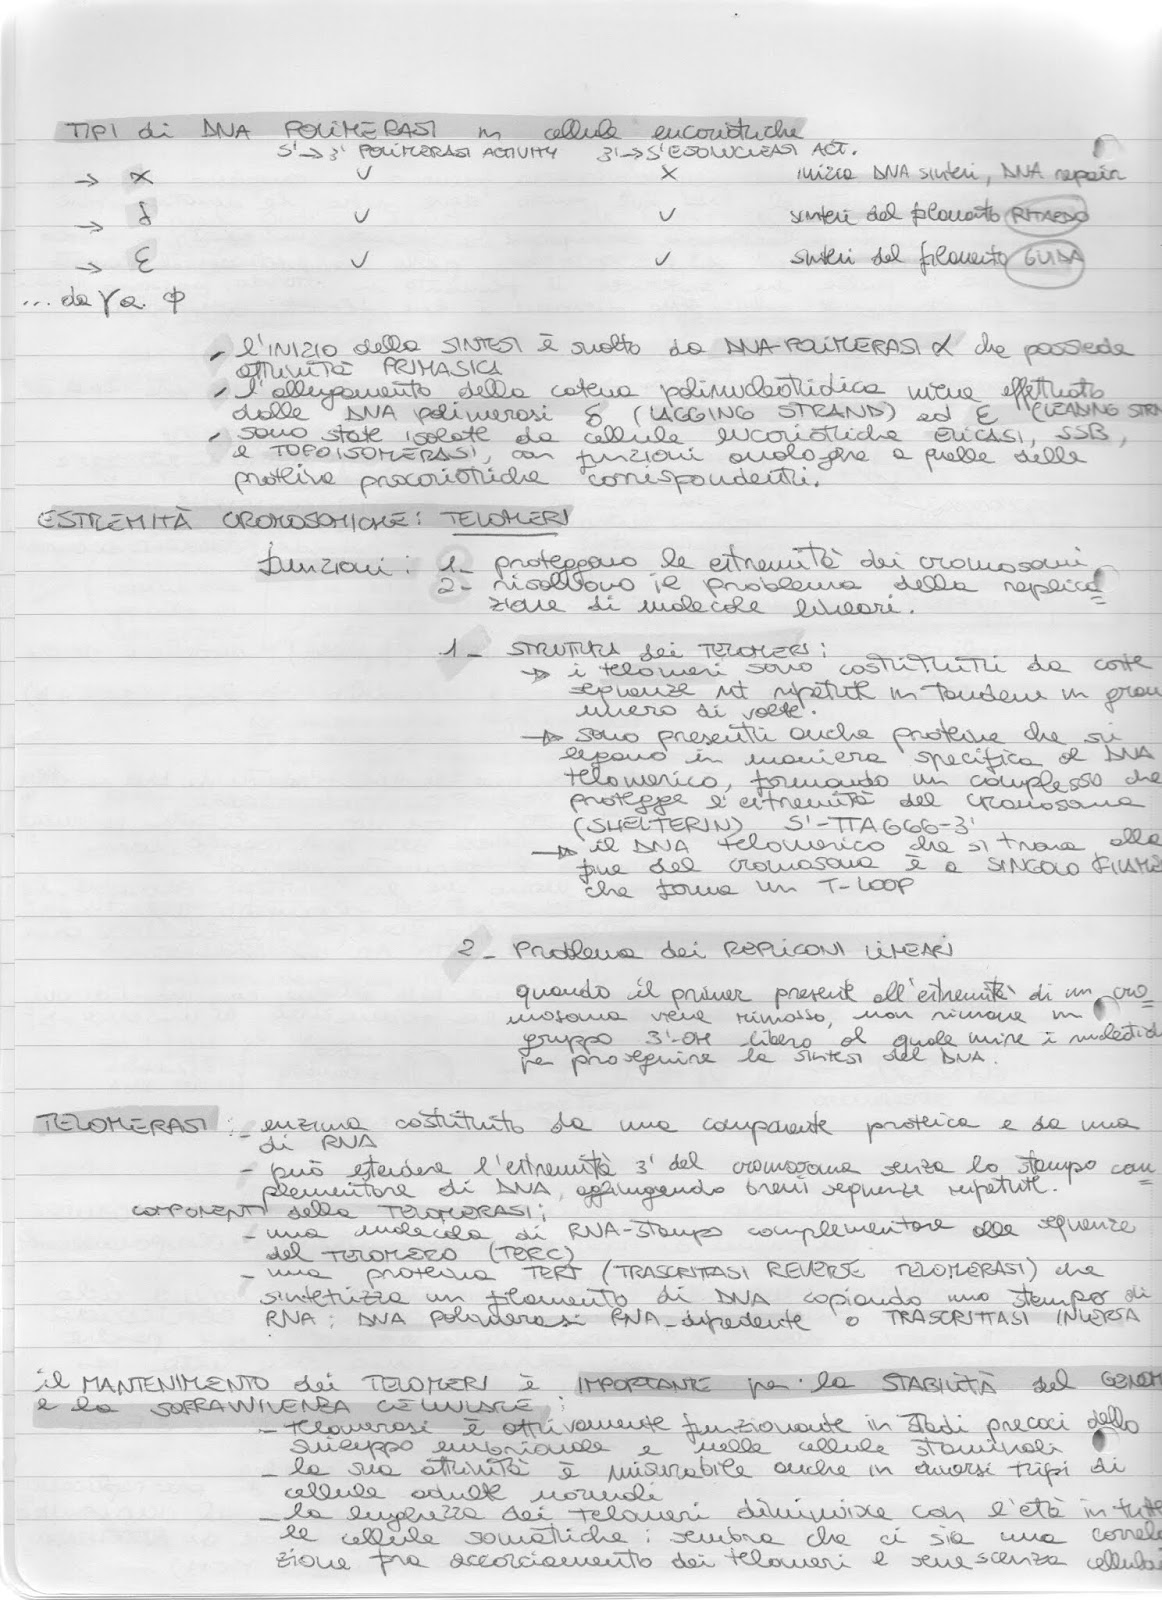 TIPI di DNA POLIMERASI in cellule eucariotiche
5'→3' POLIMERASI ACTIVITY 3'→5' ESOLUCLEASI ACT.
→ α ✓ ✗ inizio DNA sintesi, DNA repair
→ δ ✓ ✓ sintesi del filamento RITARDO
→ ε ✓ ✓ sintesi del filamento GUIDA
... da γ a φ
- l'INIZIO della SINTESI è svolto da DNA-POLIMERASI α che possiede
attività PRIMASICA
- l'allungamento della catena polinucleotidica viene effettuato
dalle DNA polimerasi δ (LAGGING STRAND) ed ε (LEADING STR
- sono state isolate da cellule eucariotiche ELICASI, SSB,
e TOPOISOMERASI, con funzioni analoghe a quelle delle
proteine procariotiche corrispondenti.
ESTREMITÀ CROMOSOMICHE: TELOMERI
funzioni: 1- proteggono le estremità dei cromosomi
2- risolvono il problema della replica=
zione di molecole lineari.
1- STRUTTURA dei TELOMERI:
→ i telomeri sono costituiti da corte
sequenze nt ripetute in tandem in gran
numero di volte.
→ sono presenti anche proteine che si
legano in maniera specifica al DNA
telomerico, formando un complesso che
protegge l'estremità del cromosoma
(SHELTERIN) 5'-TTAGGG-3'
→ il DNA telomerico che si trova alla
fine del cromosoma è a SINGOLO FILAME
che forma un T-LOOP
2- Problema dei REPLICONI LINEARI
quando il primer presente all'estremità di un cro=
mosoma viene rimosso, non rimane un
gruppo 3'-OH libero al quale unire i nucleotid
per proseguire la sintesi del DNA.
TELOMERASI: - enzima costituito da una componente proteica e da una
di RNA
- può estendere l'estremità 3' del cromosoma senza lo stampo com=
plementare di DNA, aggiungendo brevi sequenze ripetute.
COMPONENTI della TELOMERASI:
- una molecola di RNA-stampo complementare alle sequenze
del TELOMERO (TERC)
- una proteina TERT (TRASCRITTASI REVERSE TELOMERASI) che
sintetizza un filamento di DNA copiando uno stampo di
RNA: DNA Polimerasi RNA-dipedente o TRASCRITTASI INVERSA
il MANTENIMENTO dei TELOMERI è IMPORTANTE per la STABILITÀ del GENOM
e la SOPRAVVIVENZA CELLULARE:
- telomerasi è attivamente funzionante in stadi precoci dello
sviluppo embrionale e nelle cellule staminali
- la sua attività è misurabile anche in diversi tipi di
cellule adulte normali
- la lunghezza dei telomeri diminuisce con l'età in tutte
le cellule somatiche: sembra che ci sia una correla
zione fra accorciamento dei telomeri e senescenza cellular